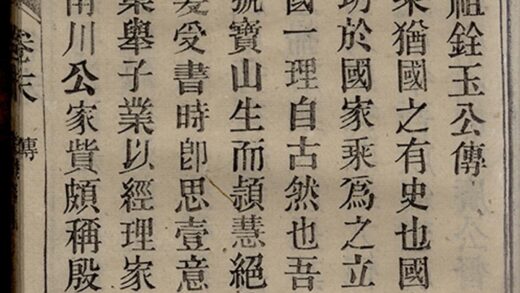 祖銓玉公傳
乘猶國之有史也國
功於國家乘爲之立
國一理自古然也吾
號寶山生而頴慧絕
髮受書時卽思壹意
業舉子業以經理家
南川公家貲頗稱殷
卷末 傳